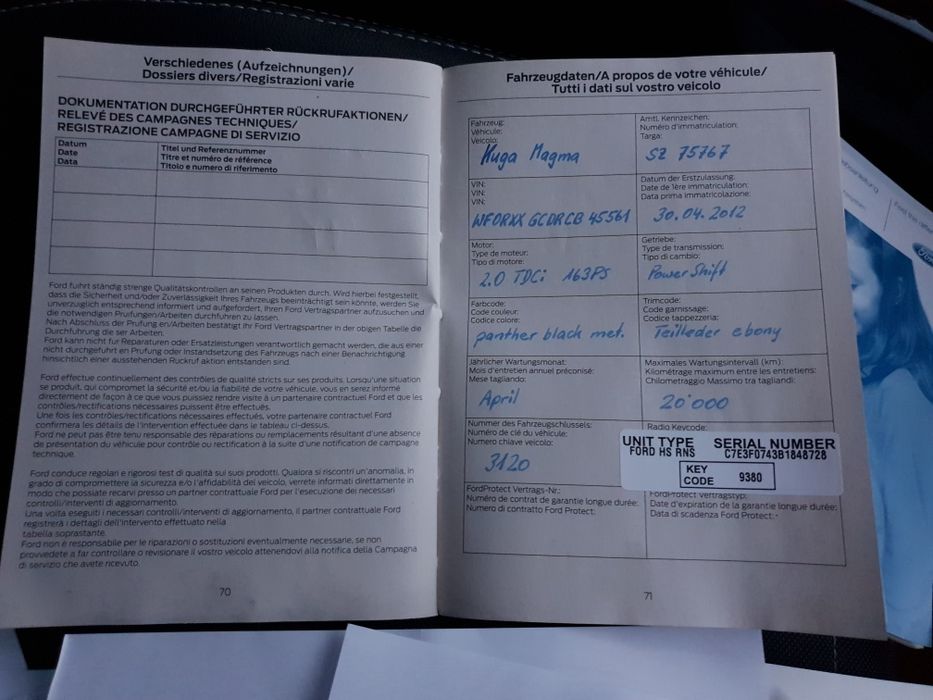 Verschiedenes (Aufzeichnungen)/
Dossiers divers/Registrazioni varie
DOKUMENTATION DURCHGEFÜHRTER RÜCKRUFAKTIONEN/
RELEVÉ DES CAMPAGNES TECHNIQUES/
REGISTRAZIONE CAMPAGNE DI SERVIZIO
Datum
Date
Data
Titel und Referenznummer
Titre et numéro de référence
Titolo e numero di riferimento
Ford führt ständig strenge Qualitätskontrollen an seinen Produkten durch. Wird hierbei festgestellt,
dass die Sicherheit und/oder Zuverlässigkeit Ihres Fahrzeugs beeinträchtigt sein könnte, werden Sie
unverzüglich entsprechend informiert und aufgefordert, Ihren Ford Vertragspartner aufzusuchen und
die notwendigen Prüfungen/Arbeiten durchführen zu lassen.
Nach Abschluss der Prüfung en/Arbeiten bestätigt Ihr Ford Vertragspartner in der obigen Tabelle die
Durchführung die ser Arbeiten.
Ford kann nicht für Reparaturen oder Ersatzleistungen verantwortlich gemacht werden, die aus einer
nicht durchgeführt en Prüfung oder Instandsetzung des Fahrzeugs nach einer Benachrichtigung
hinsichtlich einer ausstehenden Rückruf aktion entstanden sind.
Ford effectue continuellement des contrôles de qualité stricts sur ses produits. Lorsqu'une situation
se produit, qui compromet la sécurité et/ou la fiabilité de votre véhicule, vous en serez informé
directement de façon à ce que vous puissiez rendre visite à un partenaire contractuel Ford et que les
contrôles/rectifications nécessaires puissent être effectués.
Une fois les contrôles/rectifications nécessaires effectués, votre partenaire contractuel Ford
confirmera les détails de l'intervention effectuée dans le tableau ci-dessus.
Ford ne peut pas être tenu responsable des réparations ou remplacements résultant d'une absence
de présentation du véhicule pour contrôle ou rectification à la suite d'une notification de campagne
technique.
Ford conduce regolari e rigorosi test di qualità sui suoi prodotti. Qualora si riscontri un'anomalia, in
grado di compromettere la sicurezza e/o l'affidabilità del veicolo, verrete informati direttamente in
modo che possiate recarvi presso un partner contrattuale Ford per l'esecuzione dei necessari
controlli/interventi di aggiornamento.
Una volta eseguiti i necessari controlli/interventi di aggiornamento, il partner contrattuale Ford
registrerà i dettagli dell'intervento effettuato nella
tabella soprastante.
Ford non è responsabile per le riparazioni o sostituzioni eventualmente necessarie, se non
provvedete a far controllare o revisionare il vostro veicolo attenendovi alla notifica della Campagna
di servizio che avete ricevuto.
70
Fahrzeugdaten/A propos de votre véhicule/
Tutti i dati sul vostro veicolo
Fahrzeug:
Véhicule:
Veicolo:
Kuga Magma
Amtl. Kennzeichen:
Numéro d'immatriculation:
Targa:
SZ 75767
VIN:
VIN:
VIN:
WF0RXX GCDRCB 45561
Datum der Erstzulassung:
Date de 1ère immatriculation:
Data prima immatricolazione:
30.04.2012
Motor:
Type de moteur:
Tipo di motore:
2.0 TDCi 163PS
Getriebe:
Type de transmission:
Tipo di cambio:
PowerShift
Farbcode:
Code couleur:
Codice colore:
panther black met.
Trimcode:
Code garnissage:
Codice tappezzeria:
Teilleder ebony
Jährlicher Wartungsmonat:
Mois d'entretien annuel préconisé:
Mese tagliando:
April
Maximales Wartungsintervall (km):
Kilométrage maximum entre les entretiens:
Chilometraggio Massimo tra tagliandi:
20'000
Nummer des Fahrzeugschlüssels:
Numéro de clé du véhicule:
Numero chiave veicolo:
3120
Radio Keycode:
UNIT TYPE
FORD HS RNS
SERIAL NUMBER
C7E3F0743B1848728
KEY
CODE
9380
FordProtect Vertrags-Nr.:
Numéro de contrat de garantie longue durée:
Numero di contratto Ford Protect:
FordProtect Vertragstyp:
Date d'expiration de la garantie longue durée:
Data di scadenza Ford Protect:
71